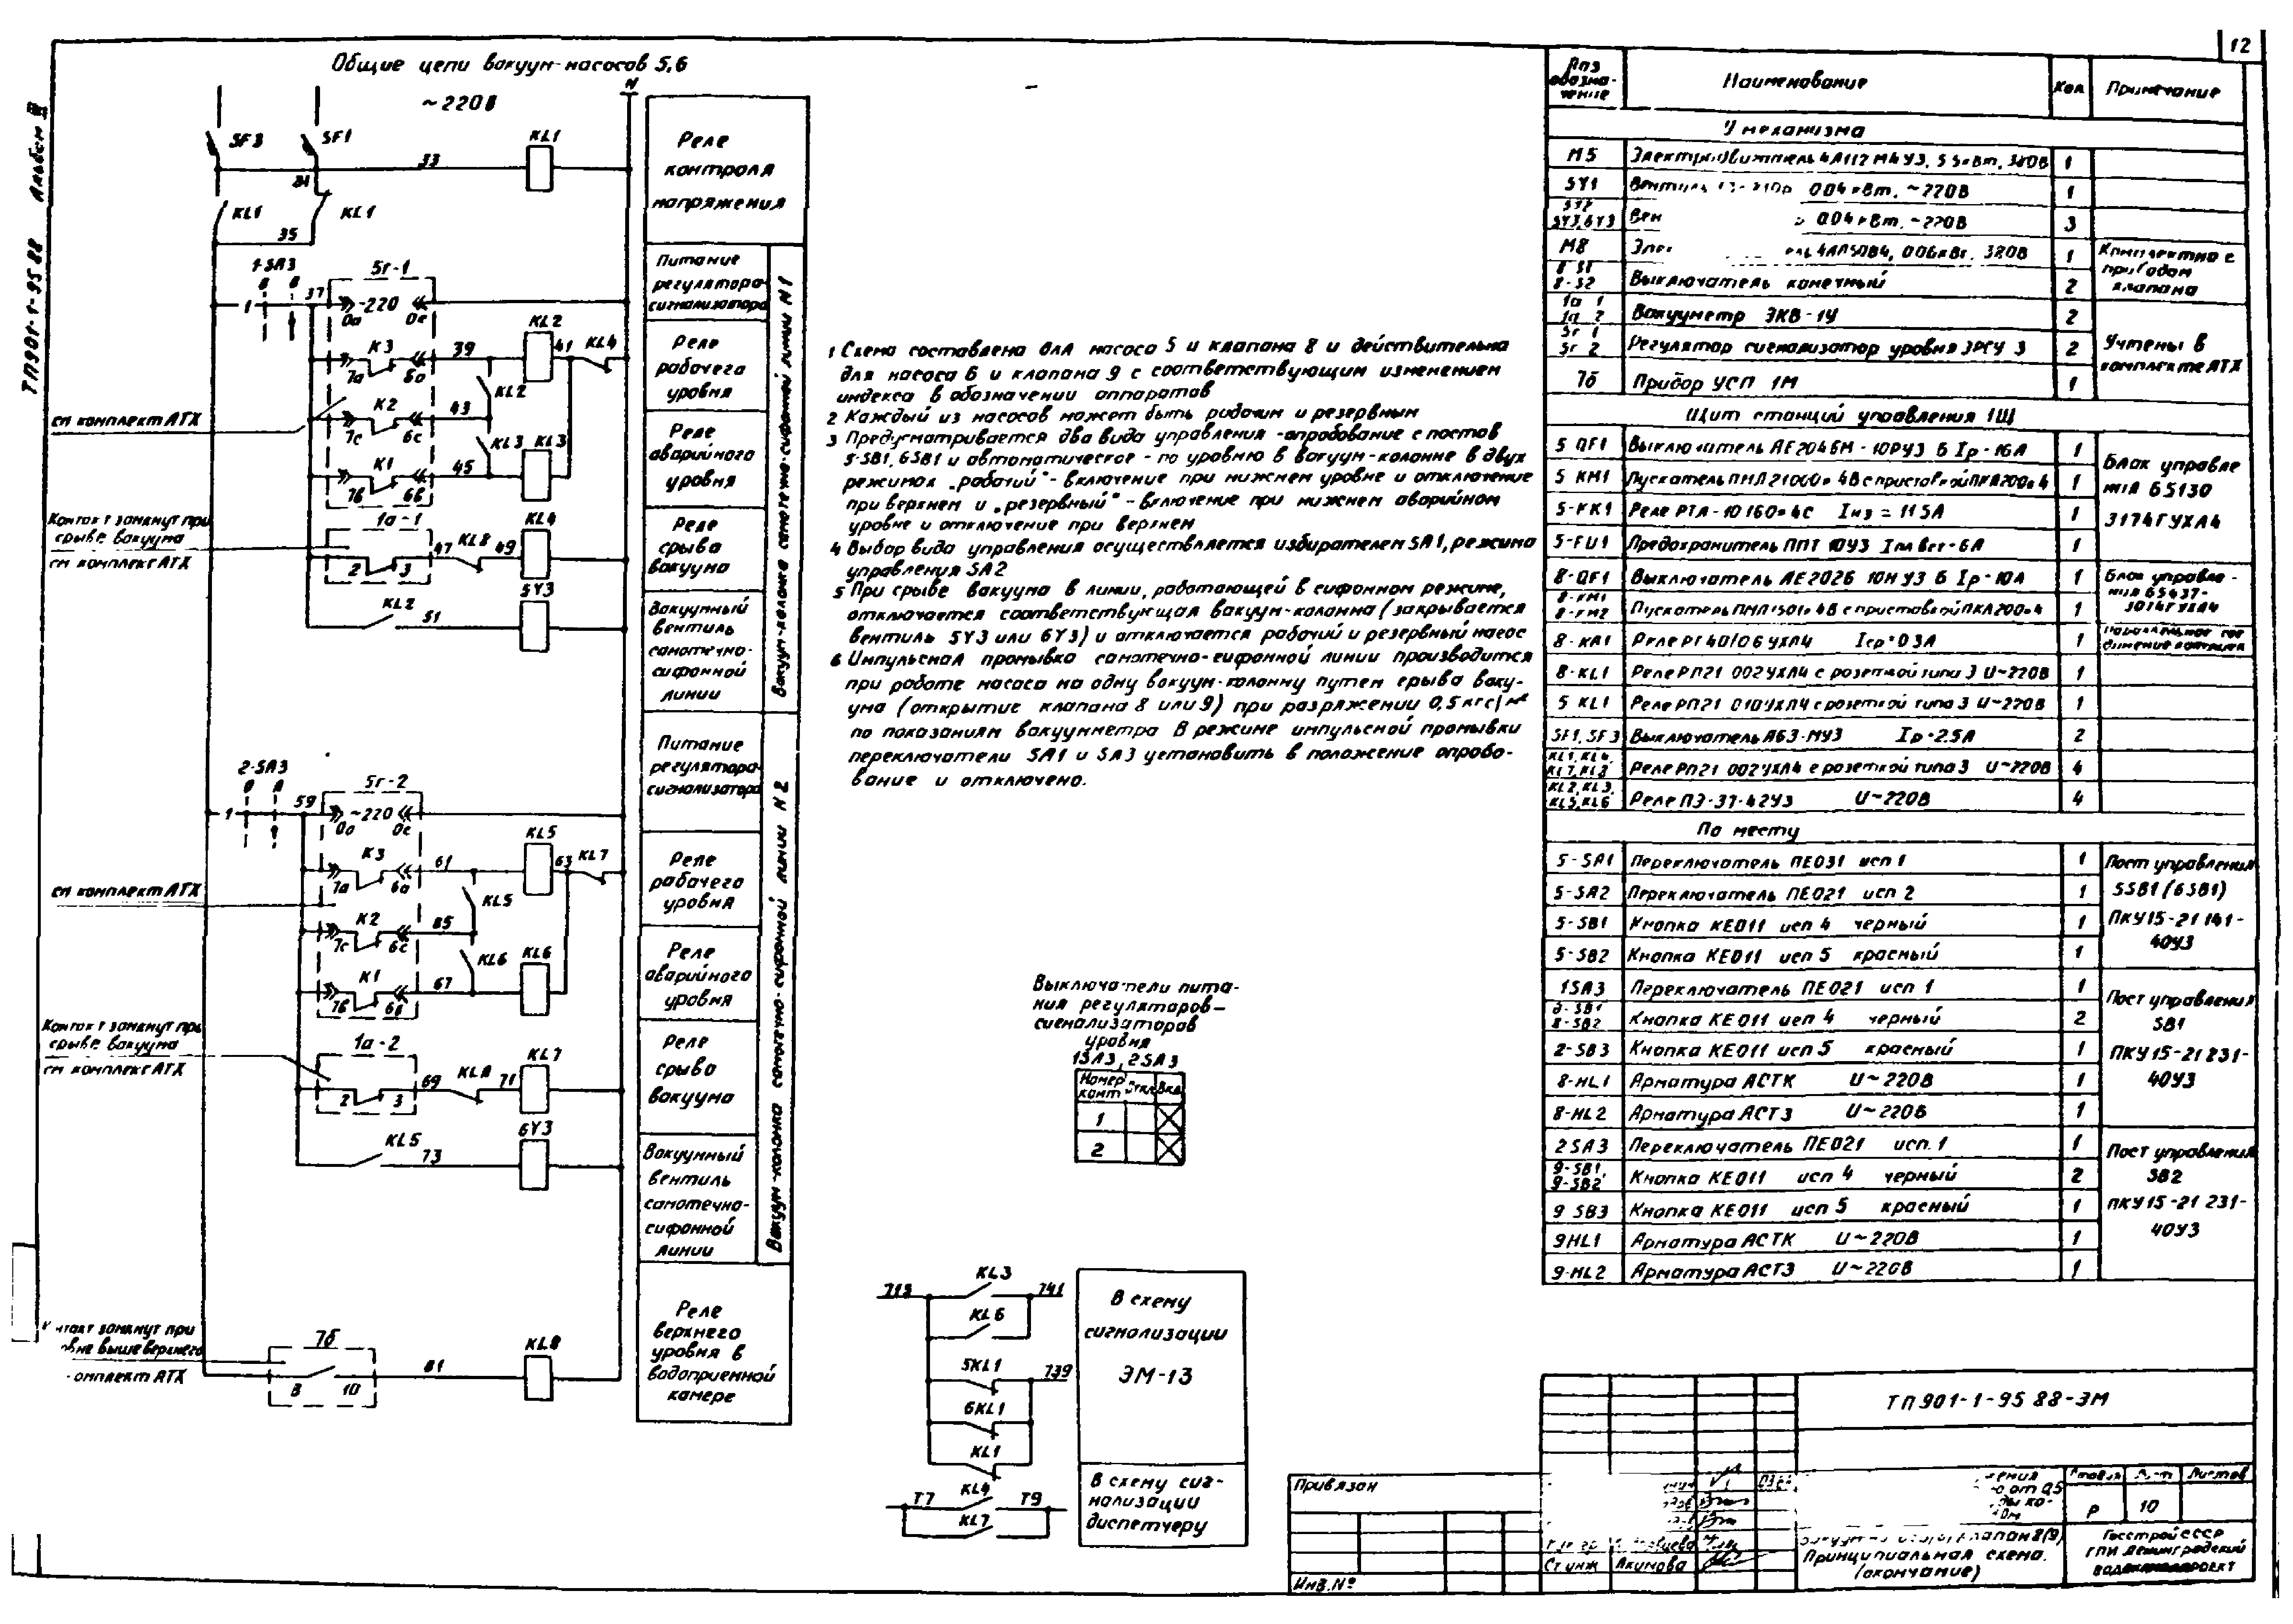 12
ТП901-1-95 88 Альбом III
Общие цепи вакуум-насосов 5,6
~220В
N
SF3
SF1
33
KL1
31
KL1
KL1
35
Реле
контроля
напряжения
1-SA3
0 В
1
37
5г-1
~220
0а 0с
K3
7а 6а
39
KL2
41
KL4
KL2
K2
7с 6с
43
KL3
KL3
K1
7в 6в
45
1а-1
2 3
47
KL8
49
KL4
KL2
51
5Y3
см комплект АТХ
Контакт замкнут при
срыве вакуума
см комплект АТХ
Питание
регулятора-
сигнализатора
Реле
рабочего
уровня
Реле
аварийного
уровня
Реле
срыва
вакуума
Вакуумный
вентиль
самотечно-
сифонной
линии
Вакуум-колонка самотечно-сифонной линии N1
2-SA3
1
59
5г-2
~220
0а 0с
K3
7а 6а
61
KL5
63
KL7
KL5
K2
7с 6с
65
KL6
KL6
K1
7в 6в
67
1а-2
2 3
69
KL8
71
KL7
KL5
73
6Y3
см комплект АТХ
Контакт замкнут при
срыве вакуума
см комплект АТХ
Питание
регулятора-
сигнализатора
Реле
рабочего
уровня
Реле
аварийного
уровня
Реле
срыва
вакуума
Вакуумный
вентиль
самотечно-
сифонной
линии
Вакуум-колонка самотечно-сифонной линии N2
замкнут при
выше верхнего
комплект АТХ
7б
8 10
81
KL8
Реле
верхнего
уровня в
водоприемной
камере
1 Схема составлена для насоса 5 и клапана 8 и действительна
для насоса 6 и клапана 9 с соответствующим изменением
индекса в обозначении аппаратов
2 Каждый из насосов может быть рабочим и резервным
3 Предусматривается два вида управления - опробование с постов
5-SB1, 6SB1 и автоматическое - по уровню в вакуум-колонне в двух
режимах „рабочий" - включение при нижнем уровне и отключение
при верхнем и „резервный" - включение при нижнем аварийном
уровне и отключение при верхнем
4 Выбор вида управления осуществляется избирателем SA1, режима
управления SA2
5 При срыве вакуума в линии, работающей в сифонном режиме,
отключается соответствующая вакуум-колонна (закрывается
вентиль 5Y3 или 6Y3) и отключается рабочий и резервный насос
6 Импульсная промывка самотечно-сифонной линии производится
при работе насоса на одну вакуум-колонну путем срыва ваку-
ума (открытие клапана 8 или 9) при разряжении 0,5 кгс/м²
по показаниям вакуумметра В режиме импульсной промывки
переключатели SA1 и SA3 установить в положение опробо-
вание и отключено.
Выключатели пита-
ния регуляторов-
сигнализаторов
уровня
1SA3, 2SA3
Номер конт Откл Вкл
1
2
713
KL3
741
KL6
5KL1
739
6KL1
KL1
В схему
сигнализации
ЭМ-13
T7
KL4
T9
KL7
В схему сиг-
нализации
диспетчеру
Поз обозна-чение Наименование Кол Примечание
У механизма
М5 Электродвигатель 4А112М4У3, 5 5кВт, 380В 1
5Y1 Вентиль 0 04 кВт, ~220В 1
5Y2 5Y3,6Y3 Вен 0 04 кВт, ~220В 3
М8 4АА50В4, 0 06кВт, 380В 1
8-S1 8-S2 Выключатель конечный 2
Комплектно с
приводом
клапана
1а 1 1а 2 Вакууметр ЭКВ-1У 2
5г 1 5г 2 Регулятор сигнализатор уровня ЭРСУ 3 2
7б Прибор УСП 1М 1
Учтены в
комплекте АТХ
Щит станций управления 1Щ
5 QF1 Выключатель АЕ2046М-10РУ3 Б Iр-16А 1
5 KM1 Пускатель ПМЛ21000*4В с приставкой ПКЛ200*4 1
5-KK1 Реле РТЛ-10160*4С Iнэ = 11 5А 1
5-FU1 Предохранитель ППТ 10У3 Iпл вст-6А 1
Блок управле
ния Б5130
3174ГУХЛ4
8-QF1 Выключатель АЕ2026 10Н У3 Б Iр-10А 1
8-KM1 8-KM2 Пускатель ПМЛ1501*4В с приставкой ПКЛ200*4 1
Блок управле-
ния Б5437-
3074ГУХЛ4
8-KA1 Реле РТ40/0 6 УХЛ4 Iср=0 3А 1
8-KL1 Реле РП21 002УХЛ4 с розеткой типа 3 U~220В 1
5 KL1 Реле РП21 010УХЛ4 с розеткой типа 3 U~220В 1
SF1, SF3 Выключатель А63-МУ3 Iр-2 5А 2
KL1, KL4, KL7, KL8 Реле РП21 002УХЛ4 с розеткой типа 3 U~220В 4
KL2, KL3, KL5, KL6 Реле ПЭ-37-42У3 U~220В 4
По месту
5-SA1 Переключатель ПЕ031 исп 1 1
5-SA2 Переключатель ПЕ021 исп 2 1
5-SB1 Кнопка КЕ011 исп 4 черный 1
5-SB2 Кнопка КЕ011 исп 5 красный 1
Пост управления
5SB1 (6SB1)
ПКУ15-21 141-
40У3
1SA3 Переключатель ПЕ021 исп 1 1
8-SB1 8-SB2 Кнопка КЕ011 исп 4 черный 2
2-SB3 Кнопка КЕ011 исп 5 красный 1
8-HL1 Арматура АСТК U~220В 1
8-HL2 Арматура АСТЗ U~220В 1
Пост управления
SB1
ПКУ15-21 231-
40У3
2SA3 Переключатель ПЕ021 исп. 1 1
9-SB1, 9-SB2 Кнопка КЕ011 исп 4 черный 2
9 SB3 Кнопка КЕ011 исп 5 красный 1
9HL1 Арматура АСТК U~220В 1
9-HL2 Арматура АСТЗ U~220В 1
Пост управления
SB2
ПКУ15-21 231-
40У3
ТП901-1-95 88-ЭМ
Привязан
Инв.№
Ст инж Акимова
Принципиальная схема.
(окончание)
Стадия Лист Листов
Р 10
Госстрой СССР
ГПИ Ленинградский
Водоканалпроект